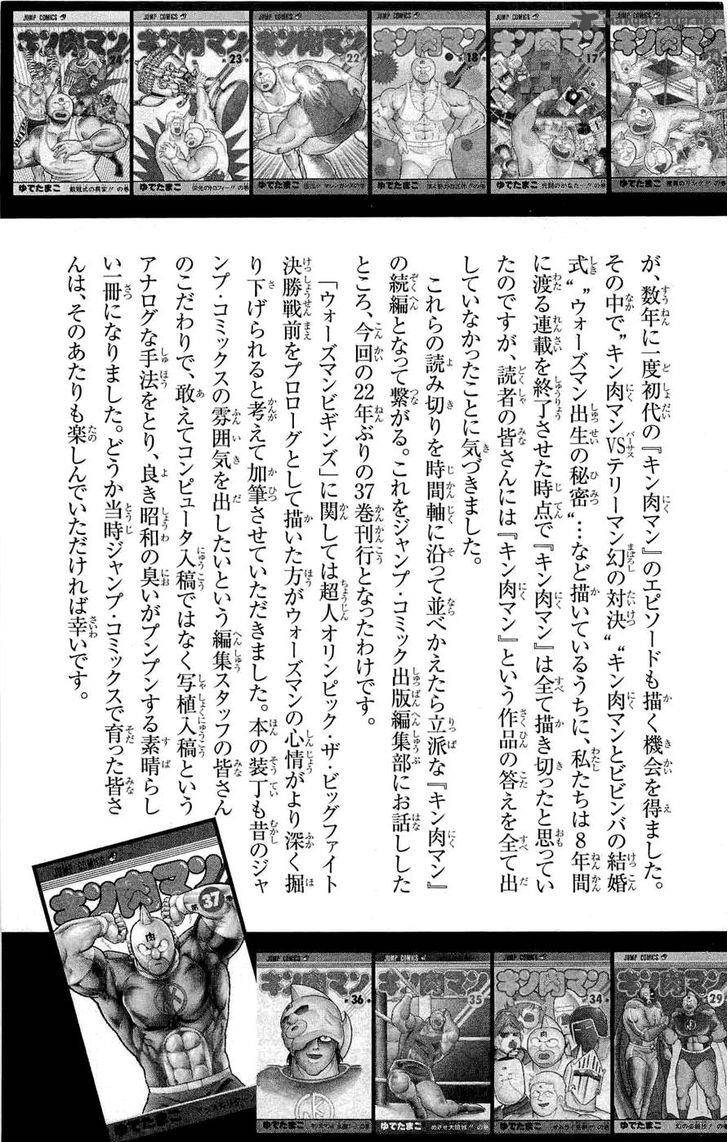 JUMP COMICS
キン肉マン
24
ゆでたまご
JUMP COMICS
キン肉マン
23
ゆでたまご
JUMP COMICS
キン肉マン
22
ゆでたまご
JUMP COMICS
キン肉マン
18
ゆでたまご
JUMP COMICS
キン肉マン
17
ゆでたまご
キン肉マン
ゆでたまご
が、数年に一度初代の『キン肉マン』のエピソードも描く機会を得ました。
その中で〝キン肉マンVSテリーマン幻の対決〟〝キン肉マンとビビンバの結婚
式〟〝ウォーズマン出生の秘密〟…など描いているうちに、私たちは8年間
に渡る連載を終了させた時点で『キン肉マン』は全て描き切ったと思ってい
たのですが、読者の皆さんには『キン肉マン』という作品の答えを全て出
していなかったことに気づきました。
これらの読み切りを時間軸に沿って並べかえたら立派な『キン肉マン』
の続編となって繋がる。これをジャンプ・コミック出版編集部にお話しした
ところ、今回の22年ぶりの37巻刊行となったわけです。
「ウォーズマンビギンズ」に関しては超人オリンピック・ザ・ビッグファイト
決勝戦前をプロローグとして描いた方がウォーズマンの心情がより深く掘
り下げられると考えて加筆させていただきました。本の装丁も昔のジャ
ンプ・コミックスの雰囲気を出したいという編集スタッフの皆さん
のこだわりで、敢えてコンピュータ入稿ではなく写植入稿という
アナログな手法をとり、良き昭和の臭いがプンプンする素晴らし
い一冊になりました。どうか当時ジャンプ・コミックスで育った皆さ
んは、そのあたりも楽しんでいただければ幸いです。
JUMP COMICS
キン肉マン
第37巻
肉
JUMP COMICS
キン肉マン
36
ゆでたまご
JUMP COMICS
キン肉マン
35
ゆでたまご
JUMP COMICS
キン肉マン
34
ゆでたまご
JUMP COMICS
キン肉マン
29
ゆでたまご